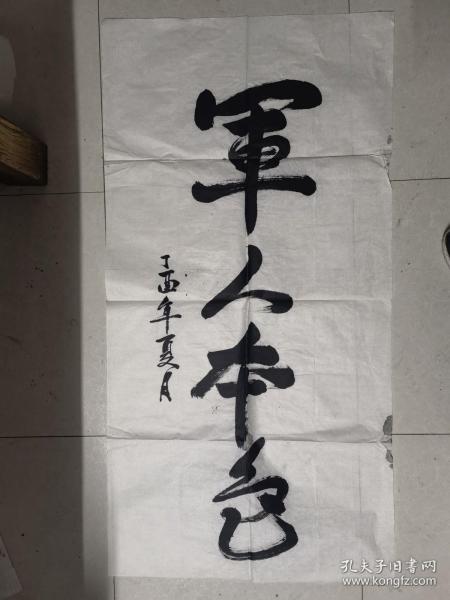 軍人本色
丁酉年夏月
孔夫子旧书网
www.kongfz.com